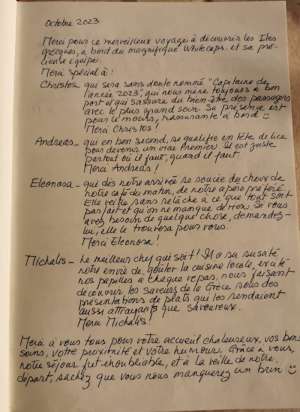 Octobre 2023
Merci pour ce merveilleux voyage à découvrir les Iles
grecques, à bord du magnifique Whitecaps et sa pré-
cieuse équipe.
Merci spécial à :
Christos, qui sera sans doute nommé "Capitaine de
l'année 2023", qui nous mène toujours à bon
port et qui s'assure du bien-être des passagers
avec le plus grand soin. Sa présence est
pour le moins, rassurante à bord
Merci Christos!
Andreas, qui en bon second, se qualifie en tête de lice
pour devenir un vrai premier. Il est juste
partout où il faut, quand il faut.
Merci Andreas!
Eleonora - qui dès notre arrivée se soucie du choix de
notre café du matin, de notre apéro préféré.
Elle veille sans relâche à ce que tout soit
parfait et qu'on ne manque de rien. Si vous
avez besoin de quelque chose, demandez-
lui, elle le trouvera pour vous.
Merci Eleonora!
Michalis - le meilleur chef qui soit! Il a su susciter
notre envie de goûter la cuisine locale,
nos papilles à chaque repas, nous faisant
découvrir les saveurs de la Grèce dans des
présentations de plats qui les rendaient
aussi attrayants que savoureux.
Merci Michalis!
Merci à vous tous pour votre accueil chaleureux, vos bons
soins, votre proximité et votre humour. Grâce à vous,
notre séjour fut inoubliable, et à la veille de notre
départ, sachez que vous nous manquerez un brin